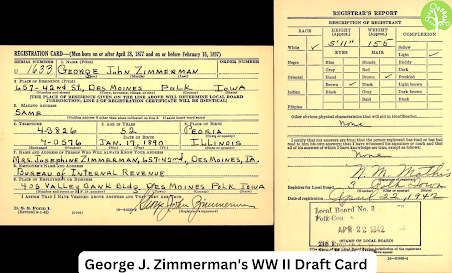 REGISTRATION CARD—(Men born on or after April 28, 1877 and on or before February 16, 1897)
SERIAL NUMBER 1. NAME (Print) ORDER NUMBER
U 1633 GEORGE JOHN ZIMMERMAN
2. PLACE OF RESIDENCE (Print)
657-42nd St, DES MOINES POLK IOWA
[THE PLACE OF RESIDENCE GIVEN ON THE LINE ABOVE WILL DETERMINE LOCAL BOARD
JURISDICTION; LINE 2 OF REGISTRATION CERTIFICATE WILL BE IDENTICAL]
3. MAILING ADDRESS
SAME
4. TELEPHONE 5. AGE IN YEARS 6. PLACE OF BIRTH
52 PEORIA
DATE OF BIRTH
4-0576 JAN. 17, 1890 ILLINOIS
7. NAME AND ADDRESS OF PERSON WHO WILL ALWAYS KNOW YOUR ADDRESS
MRS JOSEPHINE ZIMMERMAN, 657-42nd, DES MOINES, IA.
8. EMPLOYER'S NAME AND ADDRESS
BUREAU OF INTERNAL REVENUE
9. PLACE OF EMPLOYMENT OR BUSINESS
405 VALLEY BANK BLDG. DES MOINES POLK IOWA
I AFFIRM THAT I HAVE VERIFIED ABOVE ANSWERS AND THAT THEY ARE TRUE.
D. S. S. Form 1
George John Zimmerman
REGISTRAR'S REPORT
DESCRIPTION OF REGISTRANT
RACE HEIGHT (Approx.) WEIGHT (Approx.) COMPLEXION
White 5' 11" 155 Sallow
EYES HAIR Light
Negro Blue Blonde Ruddy
Gray Red Dark
Oriental Hazel Brown Freckled
Brown Black Light brown
Indian Black Gray Dark brown
Bald Black
Filipino
Other obvious physical characteristics that will aid in identification
None
I certify that my answers are true; that the person registered has read or has had
read to him his own answers; that I have witnessed his signature or mark and that
all of his answers of which I have knowledge are true, except as follows:
None
Registrar for Local Board 3 Polk Iowa
Date of registration April 22, 1942
Local Board No. 3
APR 22 1942
(STAMP OF LOCAL BOARD)
George J. Zimmerman's WW II Draft Card